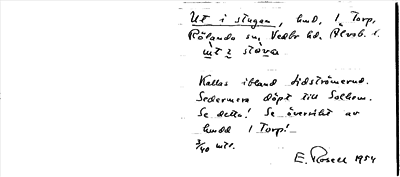 Ut i stugan, hmd. 1 Torp,
Rölanda sn, Vedbo hd, Älvsb. l.
ùt ɩ stòva
Kallas ibland Lidströmerud.
Sedermera döpt till Solhem.
Se detta! Se översikt av
hmdd 1 Torp!
3/40 mtl.
E. Rosell 1954